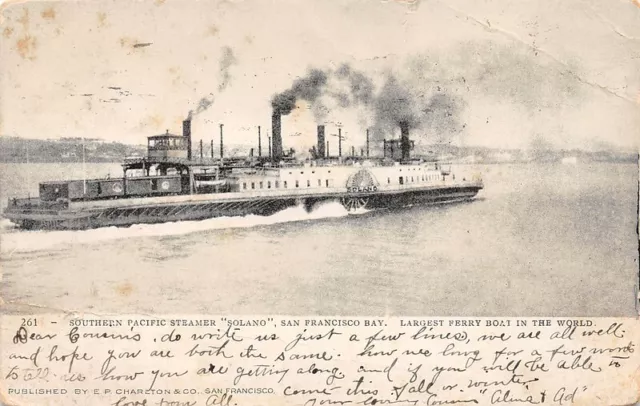 SOLANO
261 - SOUTHERN PACIFIC STEAMER "SOLANO", SAN FRANCISCO BAY. LARGEST FERRY BOAT IN THE WORLD.
Dear Cousins, do write us just a few lines, we are all well.
and hope you are both the same. how we long for a few words
to tell us how you are getting along. and if you will be able to
PUBLISHED BY E.P. CHARLTON & CO., SAN FRANCISCO.
come this fall or winter.
love from All. Your loving Cousins "Alma & Ad"